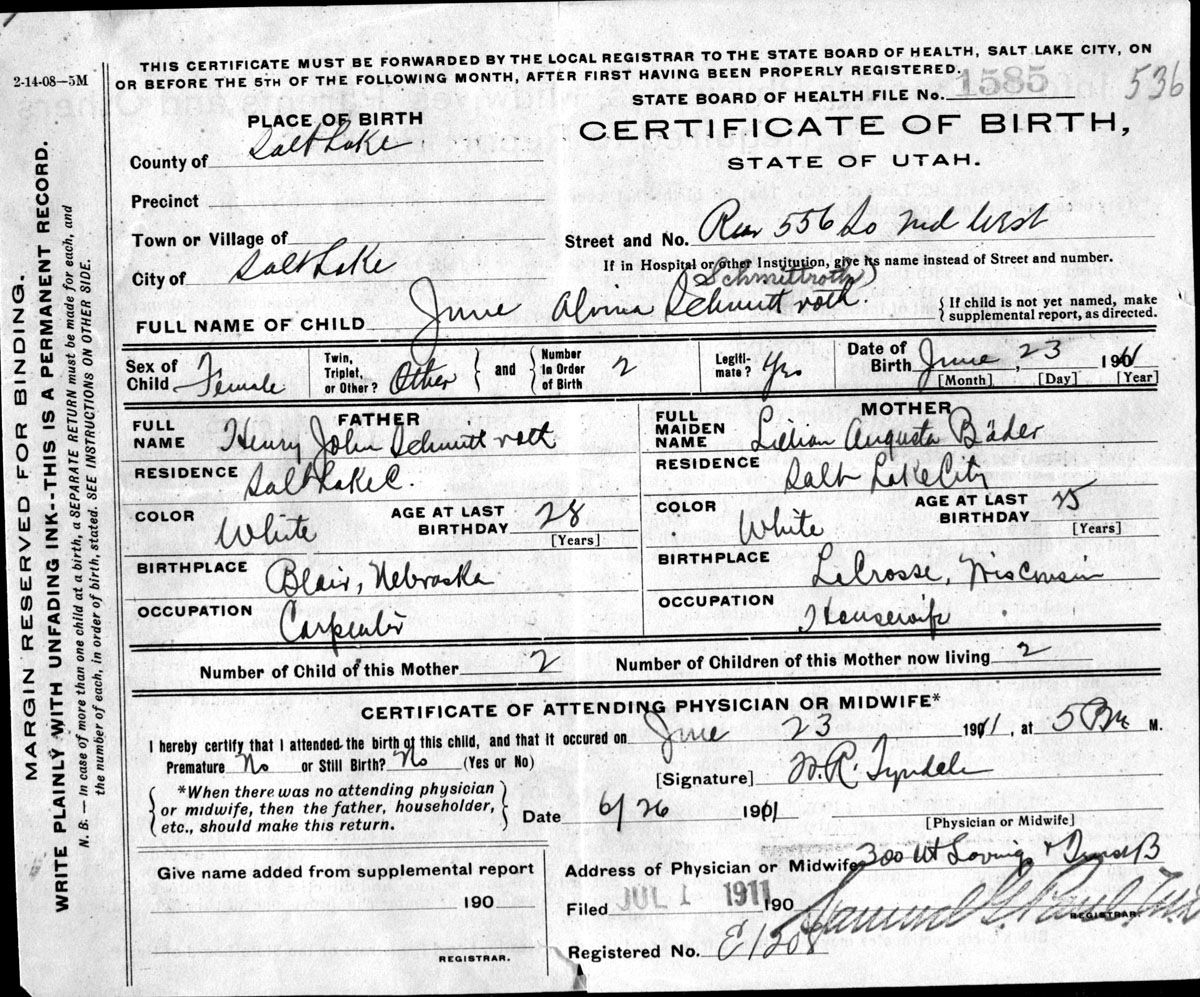 2-14-08—5M
THIS CERTIFICATE MUST BE FORWARDED BY THE LOCAL REGISTRAR TO THE STATE BOARD OF HEALTH, SALT LAKE CITY, ON
OR BEFORE THE 5TH OF THE FOLLOWING MONTH, AFTER FIRST HAVING BEEN PROPERLY REGISTERED.
STATE BOARD OF HEALTH FILE No. 1585
536
MARGIN RESERVED FOR BINDING.
WRITE PLAINLY WITH UNFADING INK--THIS IS A PERMANENT RECORD.
N. B.—In case of more than one child at a birth, a SEPARATE RETURN must be made for each, and
the number of each, in order of birth, stated. SEE INSTRUCTIONS ON OTHER SIDE.
PLACE OF BIRTH
County of Salt Lake
Precinct
Town or Village of
City of Salt Lake
CERTIFICATE OF BIRTH,
STATE OF UTAH.
Street and No. Rear 556 So 2nd West
If in Hospital or other Institution, give its name instead of Street and number.
(Schmittroth)
FULL NAME OF CHILD June Alvina Schmitt roth.
{If child is not yet named, make
supplemental report, as directed.
Sex of Child Female
Twin, Triplet, or Other? Other } and { Number In Order of Birth 2
Legiti-mate? Yes
Date of Birth June, 23 1911
[Month] [Day] [Year]
FATHER
FULL NAME Henry John Schmitt roth
RESIDENCE Salt Lake C.
COLOR White
AGE AT LAST BIRTHDAY 28
[Years]
BIRTHPLACE Blair, Nebraska
OCCUPATION Carpenter
MOTHER
FULL MAIDEN NAME Lillian Augusta Bäder
RESIDENCE Salt Lake City
COLOR White
AGE AT LAST BIRTHDAY 25
[Years]
BIRTHPLACE LaCrosse, Wisconsin
OCCUPATION Housewife
Number of Child of this Mother 2
Number of Children of this Mother now living 2
CERTIFICATE OF ATTENDING PHYSICIAN OR MIDWIFE*
I hereby certify that I attended the birth of this child, and that it occured on June 23 1911, at 5 PM M.
Premature No or Still Birth? No (Yes or No)
[Signature] W. R. Tyndale
{ *When there was no attending physician
or midwife, then the father, householder,
etc., should make this return. }
Date 6/26 1911
[Physician or Midwife]
Give name added from supplemental report
190
REGISTRAR.
Address of Physician or Midwife 300
Filed JUL 1 1911 190
REGISTRAR.
Registered No. E1208